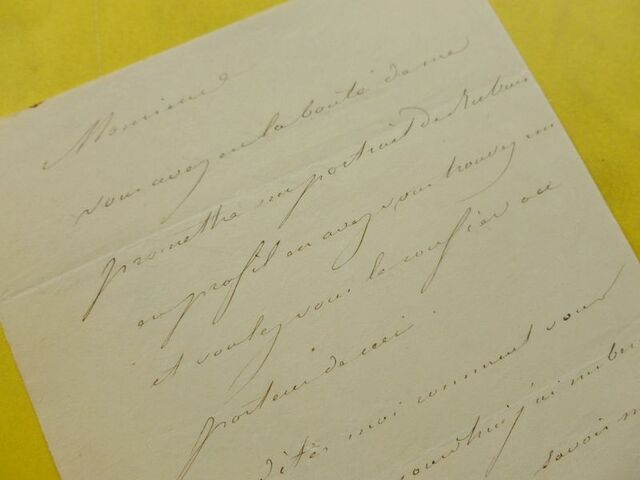 Monsieur
vous avez eu la bonté de me
promettre un portrait de Rubens
en profil en avez vous trouvez un
et voulez vous le confier au
porteur de ceci.
dites moi comment vous
j'ai
savoir